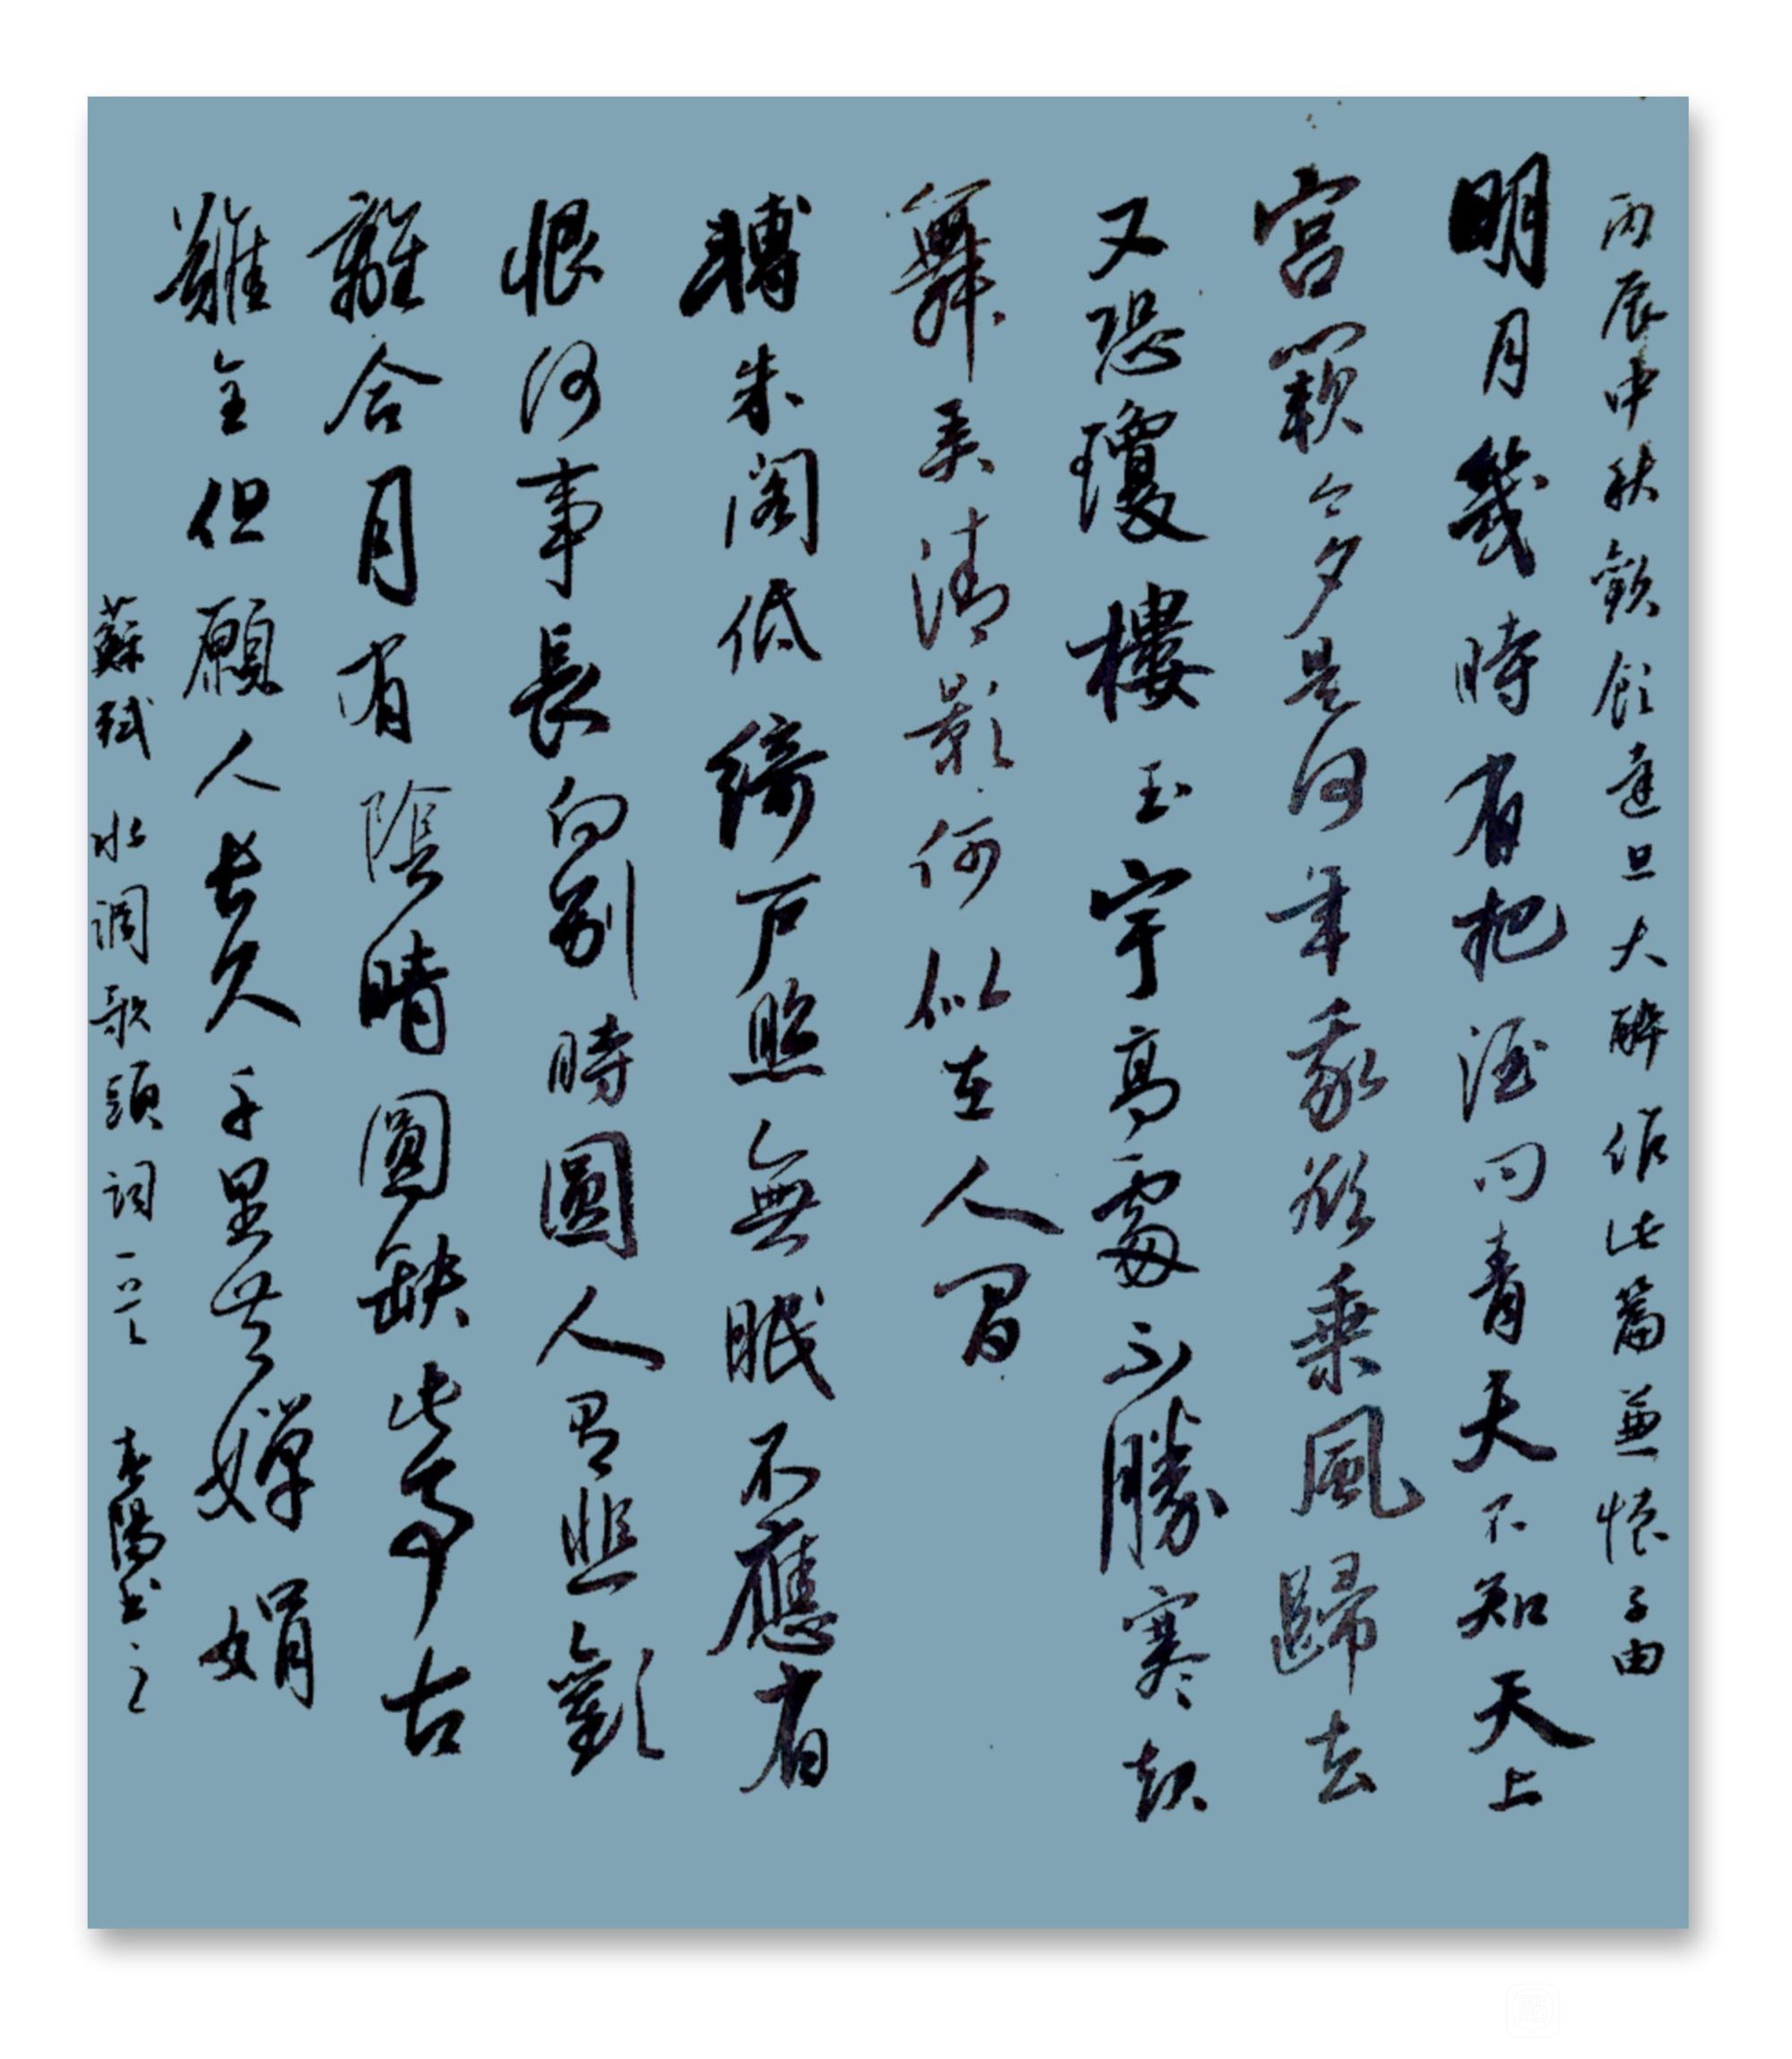 丙辰中秋歡飲達旦大醉作此篇兼懷子由
明月幾時有把酒問青天不知天上
宮闕今夕是何年我欲乘風歸去
又恐瓊樓玉宇高處不勝寒起
舞弄清影何似在人間
轉朱閣低綺戶照無眠不應有
恨何事長向別時圓人有悲歡
離合月有陰晴圓缺此事古
難全但願人長久千里共嬋娟
蘇軾 水調歌頭詞一首 春陽書之